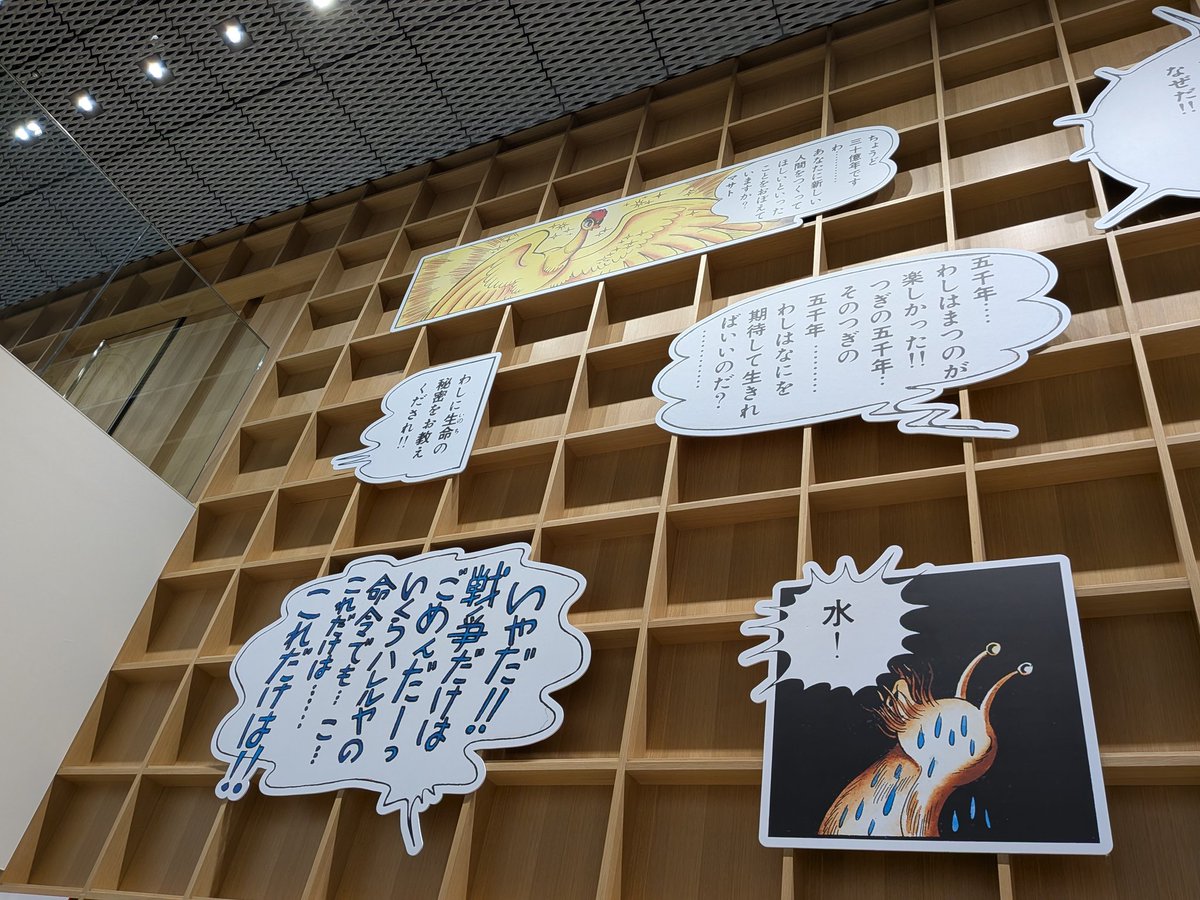 なぜだ!!
ちょうど
三十億年です
わ………
あなたに新しい
人間をつくって
ほしいといった
ことをおぼえて
いますか?
マサト
五千年……
わしはまつのが
楽しかった!!
つぎの五千年…
そのつぎの
五千年…………
わしはなにを
期待して生きれ
ばいいのだ?
…………
わしに生命の
いのち
秘密をお教え
くだされ!!
いやだ!!
戦争だけは
ごめんだーっ
いくらハレルヤの
命令でも…こ…
これだけは……
これだけは!!
水!